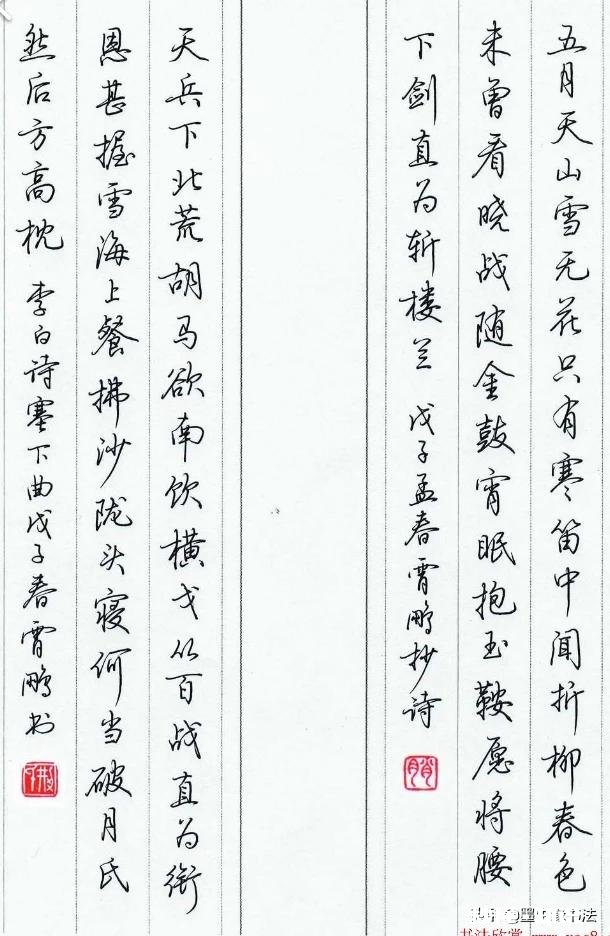 五月天山雪无花只有寒笛中闻折柳春色
未曾看晓战随金鼓宵眠抱玉鞍愿将腰
下剑直为斩楼兰 戊子孟春霄鹏抄诗
天兵下北荒胡马欲南饮横戈从百战直为衔
恩甚握雪海上餐拂沙陇头寝何当破月氏
然后方高枕 李白诗塞下曲戊子春霄鹏书
书法欣赏